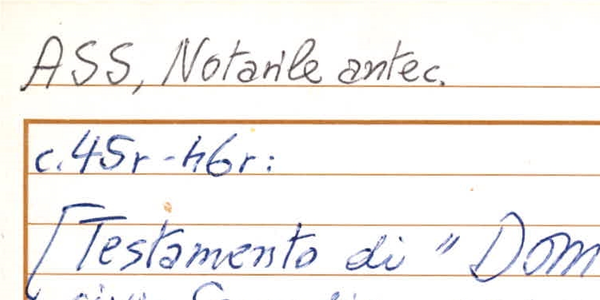 ASS, Notarile antec.
c.45r-46r:
[Testamento di "Dom